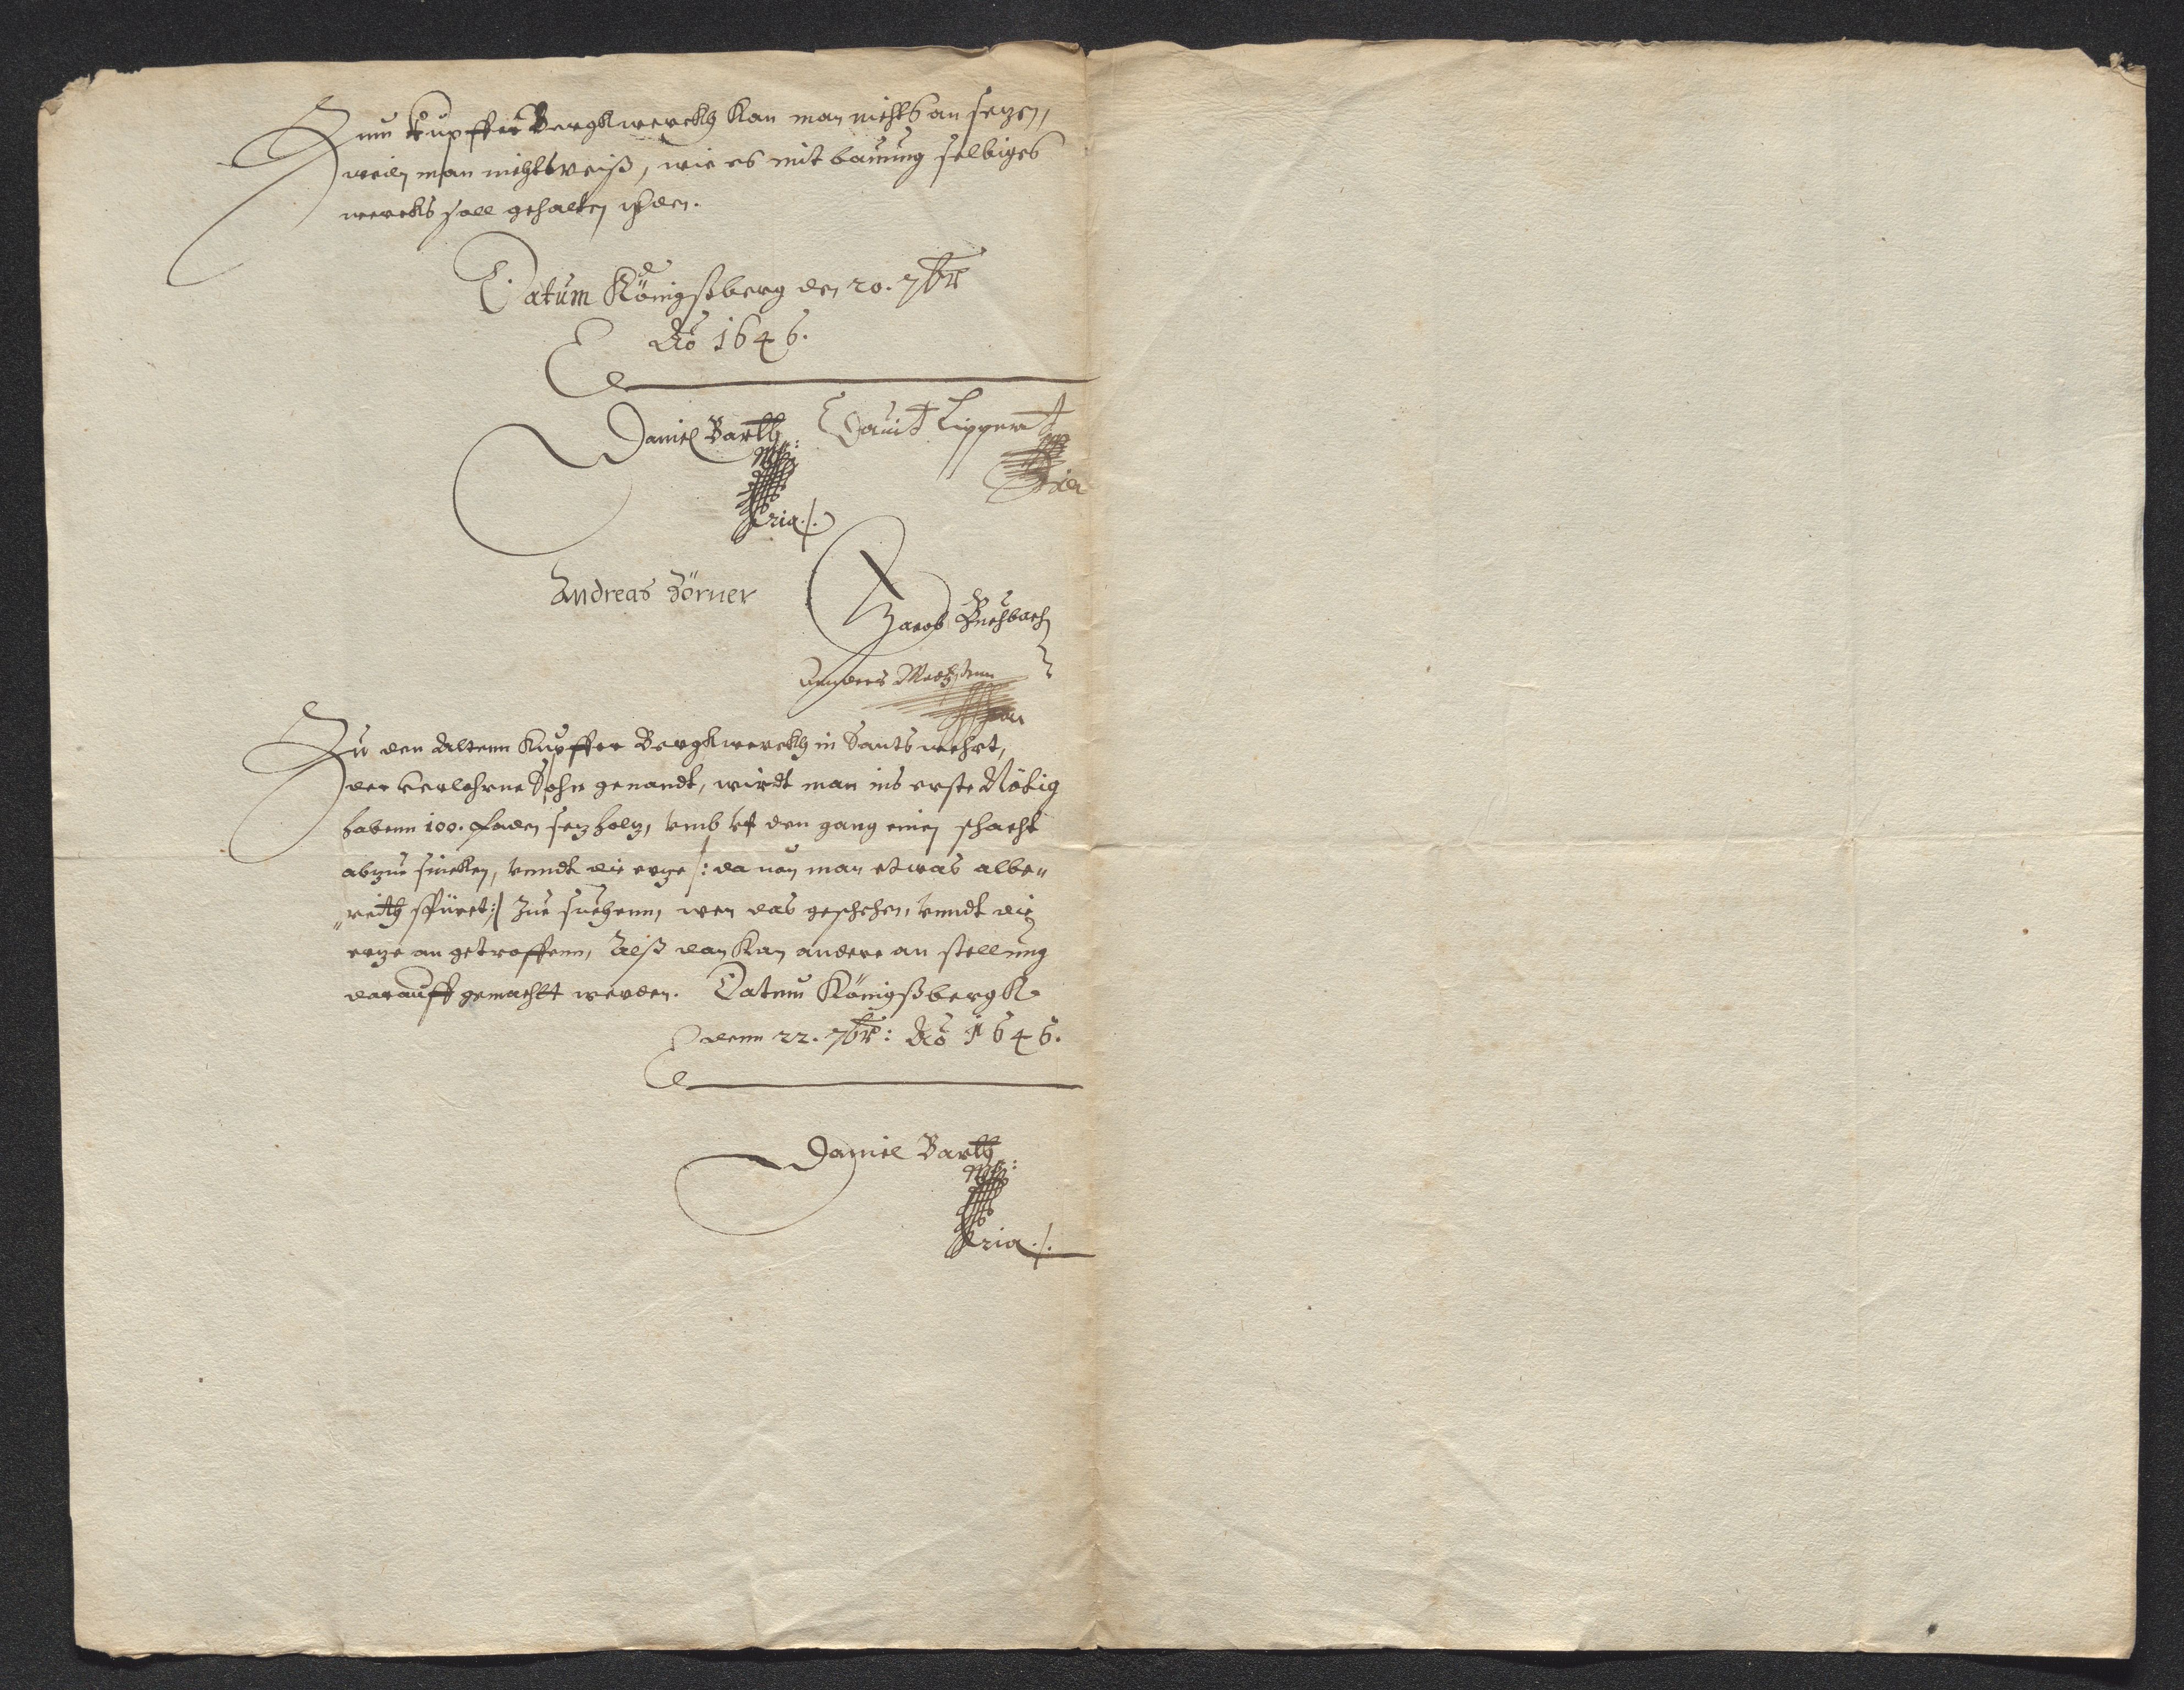 Zum Kupffer Bergkwerckh Kan man nichts an sezen,
weiln man nicht weiß, wie es mit bauung selbiges
wercks soll gehalten werden.
Datum Königßberg den 20. 7br
Ao 1646.
Daniel Barth Dauit Lippert
Mp:
pria ./.
Andreas Körner
Jacob Buchbach
Anders
Zu den Altenn Kupffer Bergkwerckh in Sants wehrt,
der Verlohrne Sohn genandt, wirdt man ins erste Nötig
habenn 100. faden sez holz, vmb vf den gang einen schacht
abzue sincken, vnndt die erze /: da von man etwas albe„
„reith spüret :/ Zue suchenn, wen das geschehen, vnndt die
erze an getroffenn, Alß dan Kan andere an stellung
darauff gemacht werden. Datum Königßbergk
denn 22. 7br: Ao 1646.
Daniel Barth
Mp:
pria ./.